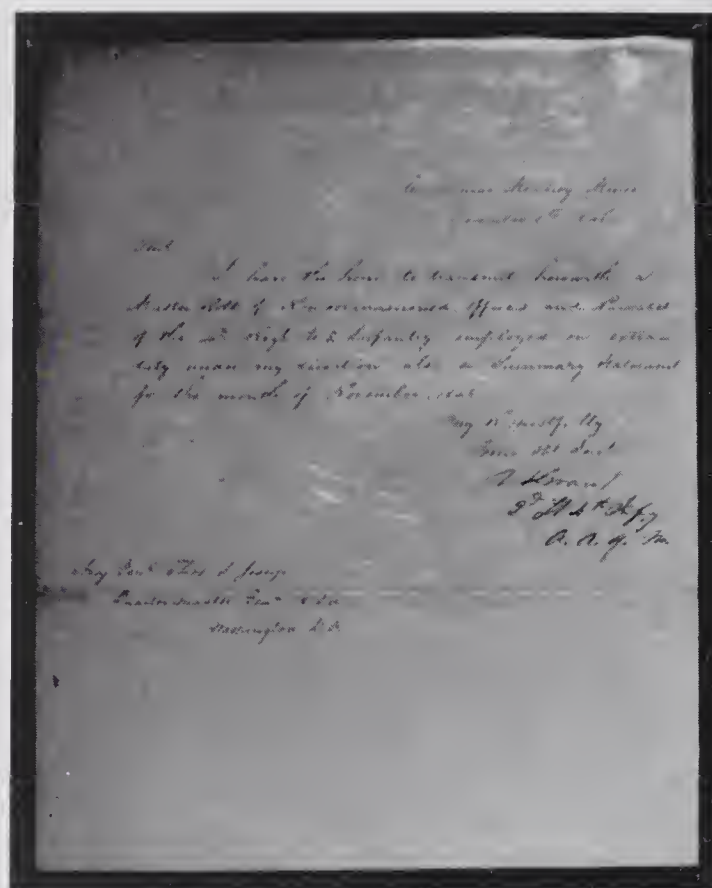 Camp near Monterey Mexico
6th
Genl
I have the honor to transmit herewith a
Muster Roll of Non commissioned Officers and Privates
of the 4th Regt U S Infantry employed on extra
duty under my direction also a Summary Statement
for the month of November 1846
Very Respectfully
Your Obt Servt
U S Grant
2d Lt 4th Infy
A. A. Q. M.
Maj Genl Thos S Jesup
Quartermaster Genl U S A
Washington D. C.